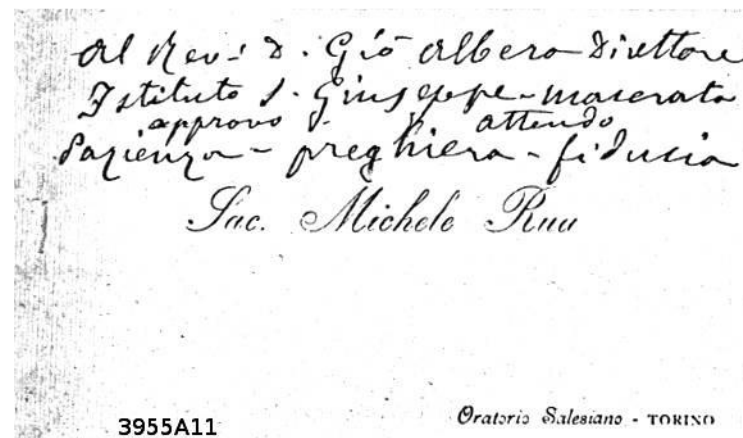 Al Rev.º D. Giõ Albera Direttore
Istituto S. Giuseppe - Macerata
approvo attendo
Pazienza - preghiera - fiducia
Sac. Michele Rua
Oratorio Salesiano - TORINO
3955A11